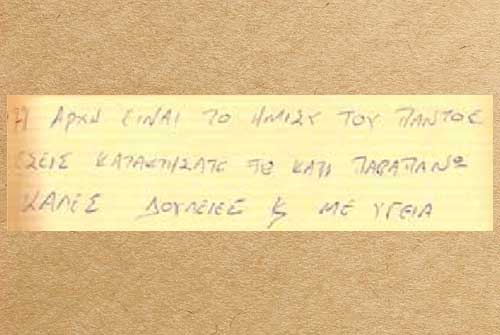 Η ΑΡΧΗ ΕΙΝΑΙ ΤΟ ΗΜΙΣΥ ΤΟΥ ΠΑΝΤΟΣ
ΕΣΕΙΣ ΚΑΤΑΚΤΗΣΑΤΕ ΤΟ ΚΑΤΙ ΠΑΡΑΠΑΝΩ
ΚΑΛΕΣ ΔΟΥΛΕΙΕΣ & ΜΕ ΥΓΕΙΑ